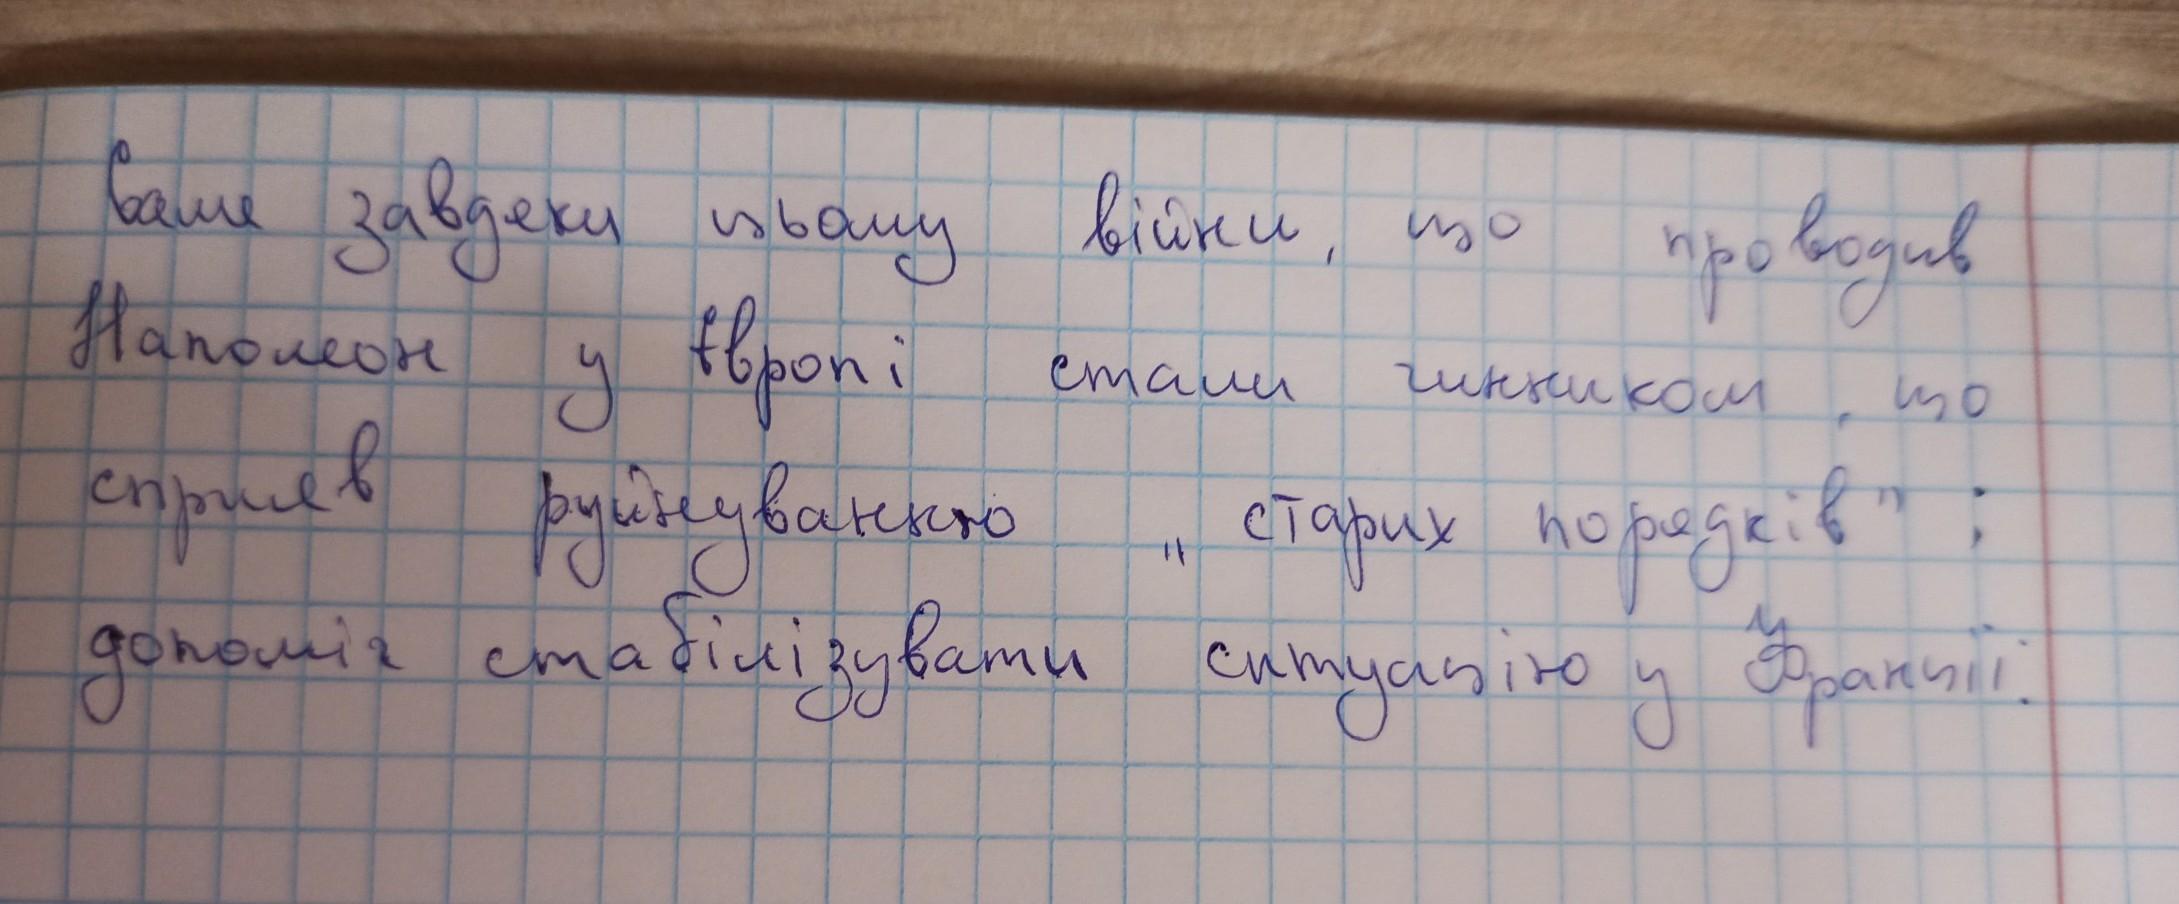 саме завдяки цьому війни, що проводив
Наполеон у Європі стали чинником, що
сприяв руйнуванню „старих порядків" і
допоміг стабілізувати ситуацію у Франції.